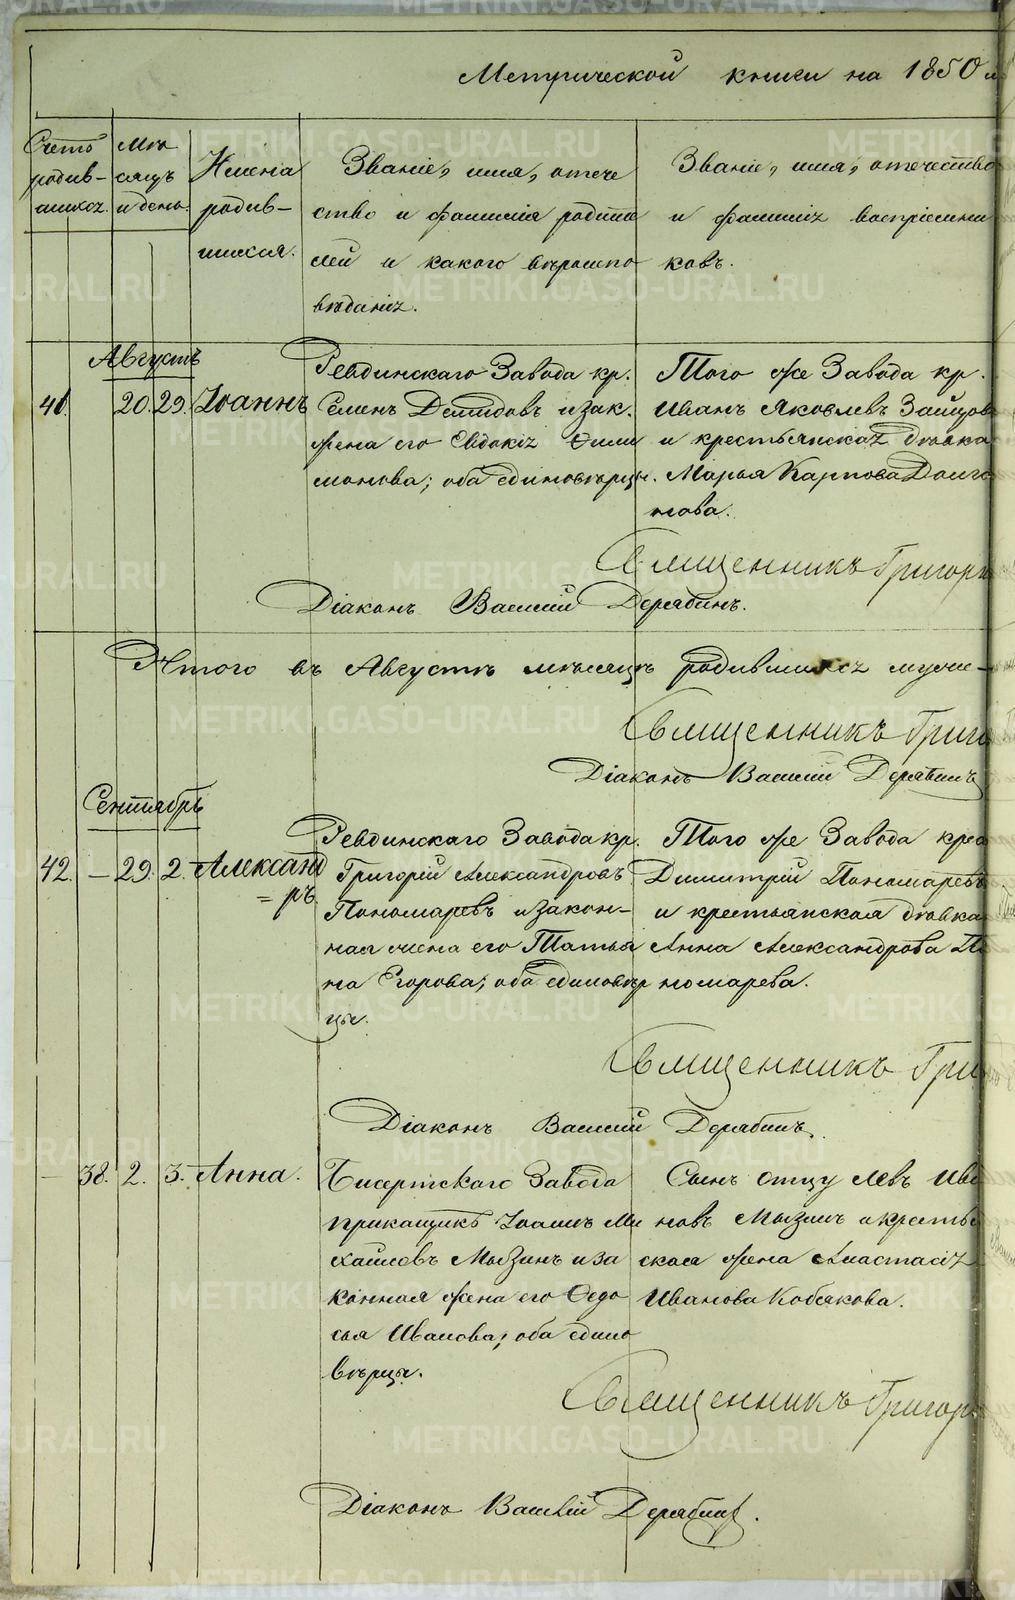 Метрической книги на 1850 й
Счетъ родив- шихся.
Мѣ сяцъ и день.
Имена родив- шихся.
Званіе, имя, отече ство и фамилія родите лей и какого вѣроиспо вѣданія.
Званіе, имя, отечество и фамилія воспріемни ковъ.
Августъ
41. 20. 29. Іоаннъ
Ревдинскаго Завода кр.
Семенъ Демидовъ и зак.
жена его Евдокія Фили
монова; оба единовѣрцы.
Того же Завода кр.
Иванъ Яковлевъ Зайцов
и крестьянская дѣвка
Марья Карпова Долго
нова.
Священникъ Григорі
Діаконъ Василій Дерябинъ.
Итого въ Августѣ мѣсяцѣ родившихся муже-
Священникъ Григо
Діаконъ Василій Дерябинъ
Сентябрь
42. — 29. 2. Александ
= ръ
Ревдинскаго Завода кр.
Григорій Александровъ
Пономаревъ и закон-
ная жена его Татья
на Егорова; оба единовѣр
цы.
Того же Завода крес
Димитрій Пономаревъ
и крестьянская дѣвка
Анна Александрова По
номарева.
Священникъ Гри
Діаконъ Василій Дерябинъ.
— 38. 2. 3. Анна.
Бисертскаго Завода
прикащикъ Іоаннъ Ми
хайловъ Мызинъ и за
конная жена его Федо
сья Иванова; оба едино
вѣрцы.
Сынъ отцу Левъ Ива
новъ Мызинъ и крестья
ская жена Анастасія
Иванова Кобякова.
Священникъ Григорі
Діаконъ Василій Дерябинъ.
METRIKI.GASO-URAL.RU